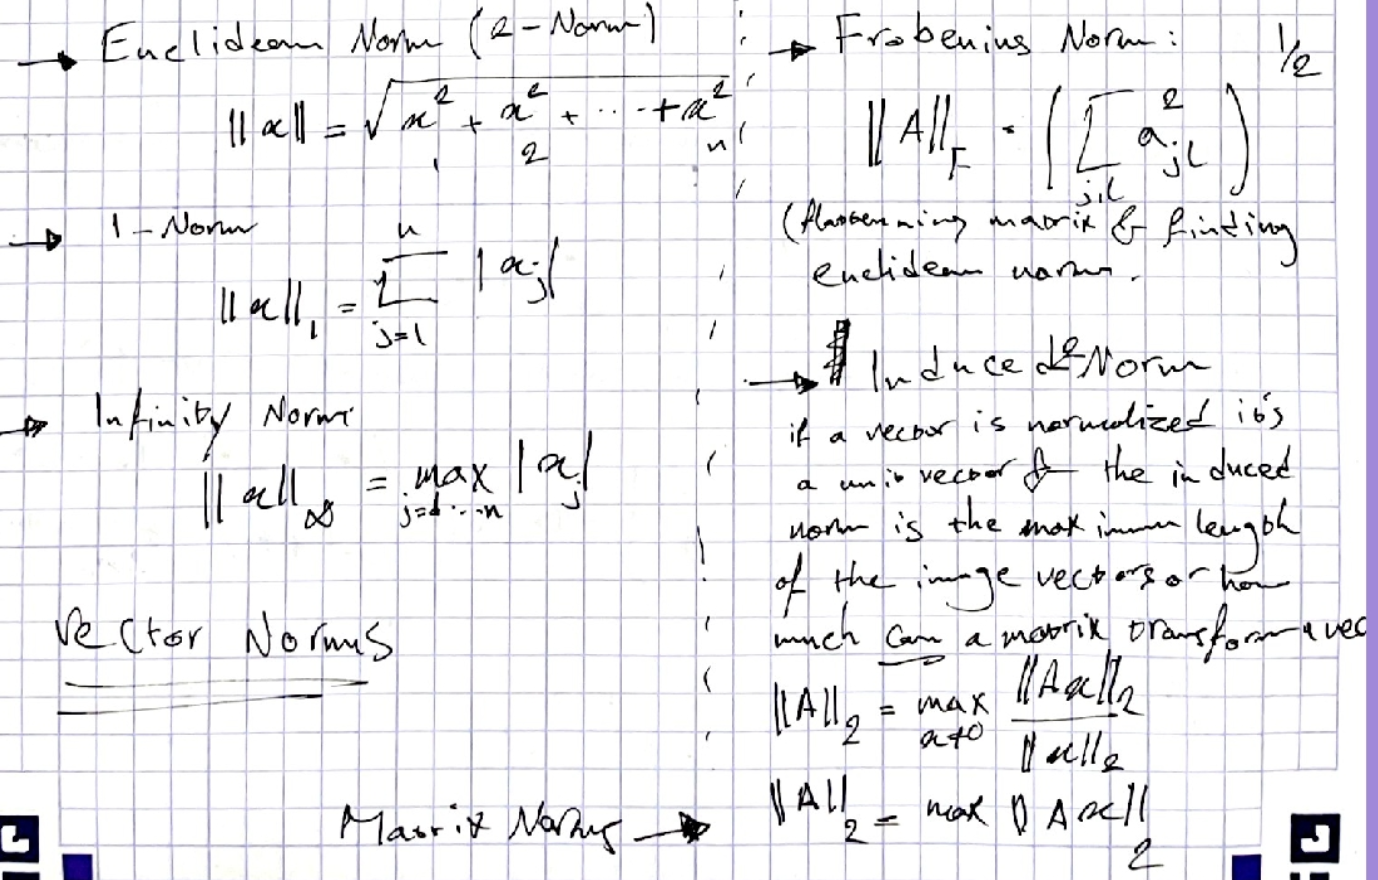 → Euclidean Norm (2-Norm)
||x|| = √(x₁² + x₂² + ··· + x_n²)
→ 1-Norm
||x||₁ = Σ_{j=1}^{n} |x_j|
→ Infinity Norm
||x||_∞ = max_{j=1···n} |x_j|
Vector Norms
→ Frobenius Norm:
||A||_F = (Σ_{j,i} a_{ji}²)^{1/2}
(flattenning matrix & finding
euclidean norm.
→ Induced 2 Norm
if a vector is normalized it's
a unit vector & the induced
norm is the maximum length
of the image vectors or how
much can a matrix transform a vec
||A||₂ = max_{x≠0} ||Ax||₂ / ||x||₂
||A||₂ = max ||Ax||₂
Matrix Norms →